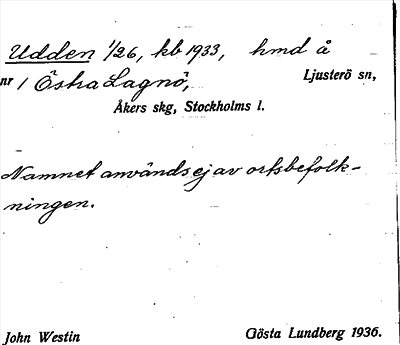 Udden 1/26, kb 1933, hmd å
nr 1 Östra Lagnö, Ljusterö sn,
Åkers skg, Stockholms l.
Namnet användes ej av ortsbefolk-
ningen.
John Westin Gösta Lundberg 1936.